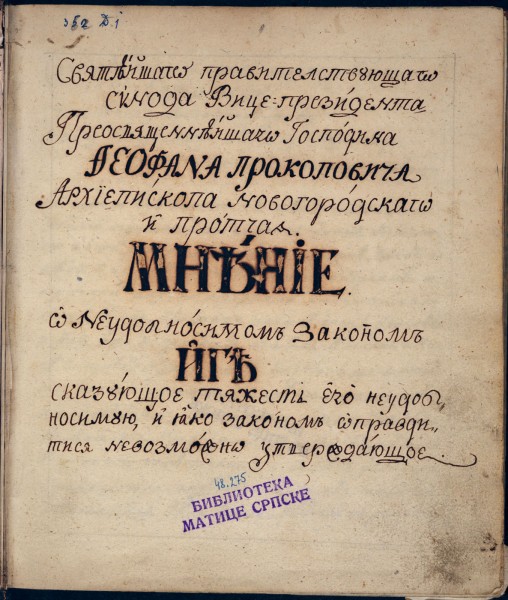 352 Д.1
Свѧтѣ́йшагѡ правителствующагѡ
сѵнода Вице-презы́дента
Преосвященнѣ́йшагѡ Господи́на
ѲЕОФАНА ПРОКОПОВИЧА
Архїепи́скопа новогоро́дскагѡ
и҆ про́тчая.
МНѢ́НІЕ.
ѡ Неудобноси́момъ Зако́нномъ
И҆́ГѢ
сказу́ющое тѧжесть е҆гѡ̀ неудобь
носимую, и҆ ꙗкѡ закономъ ѡправди„
тися невозмо́жно утвержда́ющое.
48.275
БИБЛИОТЕКА
МАТИЦЕ СРПСКЕ